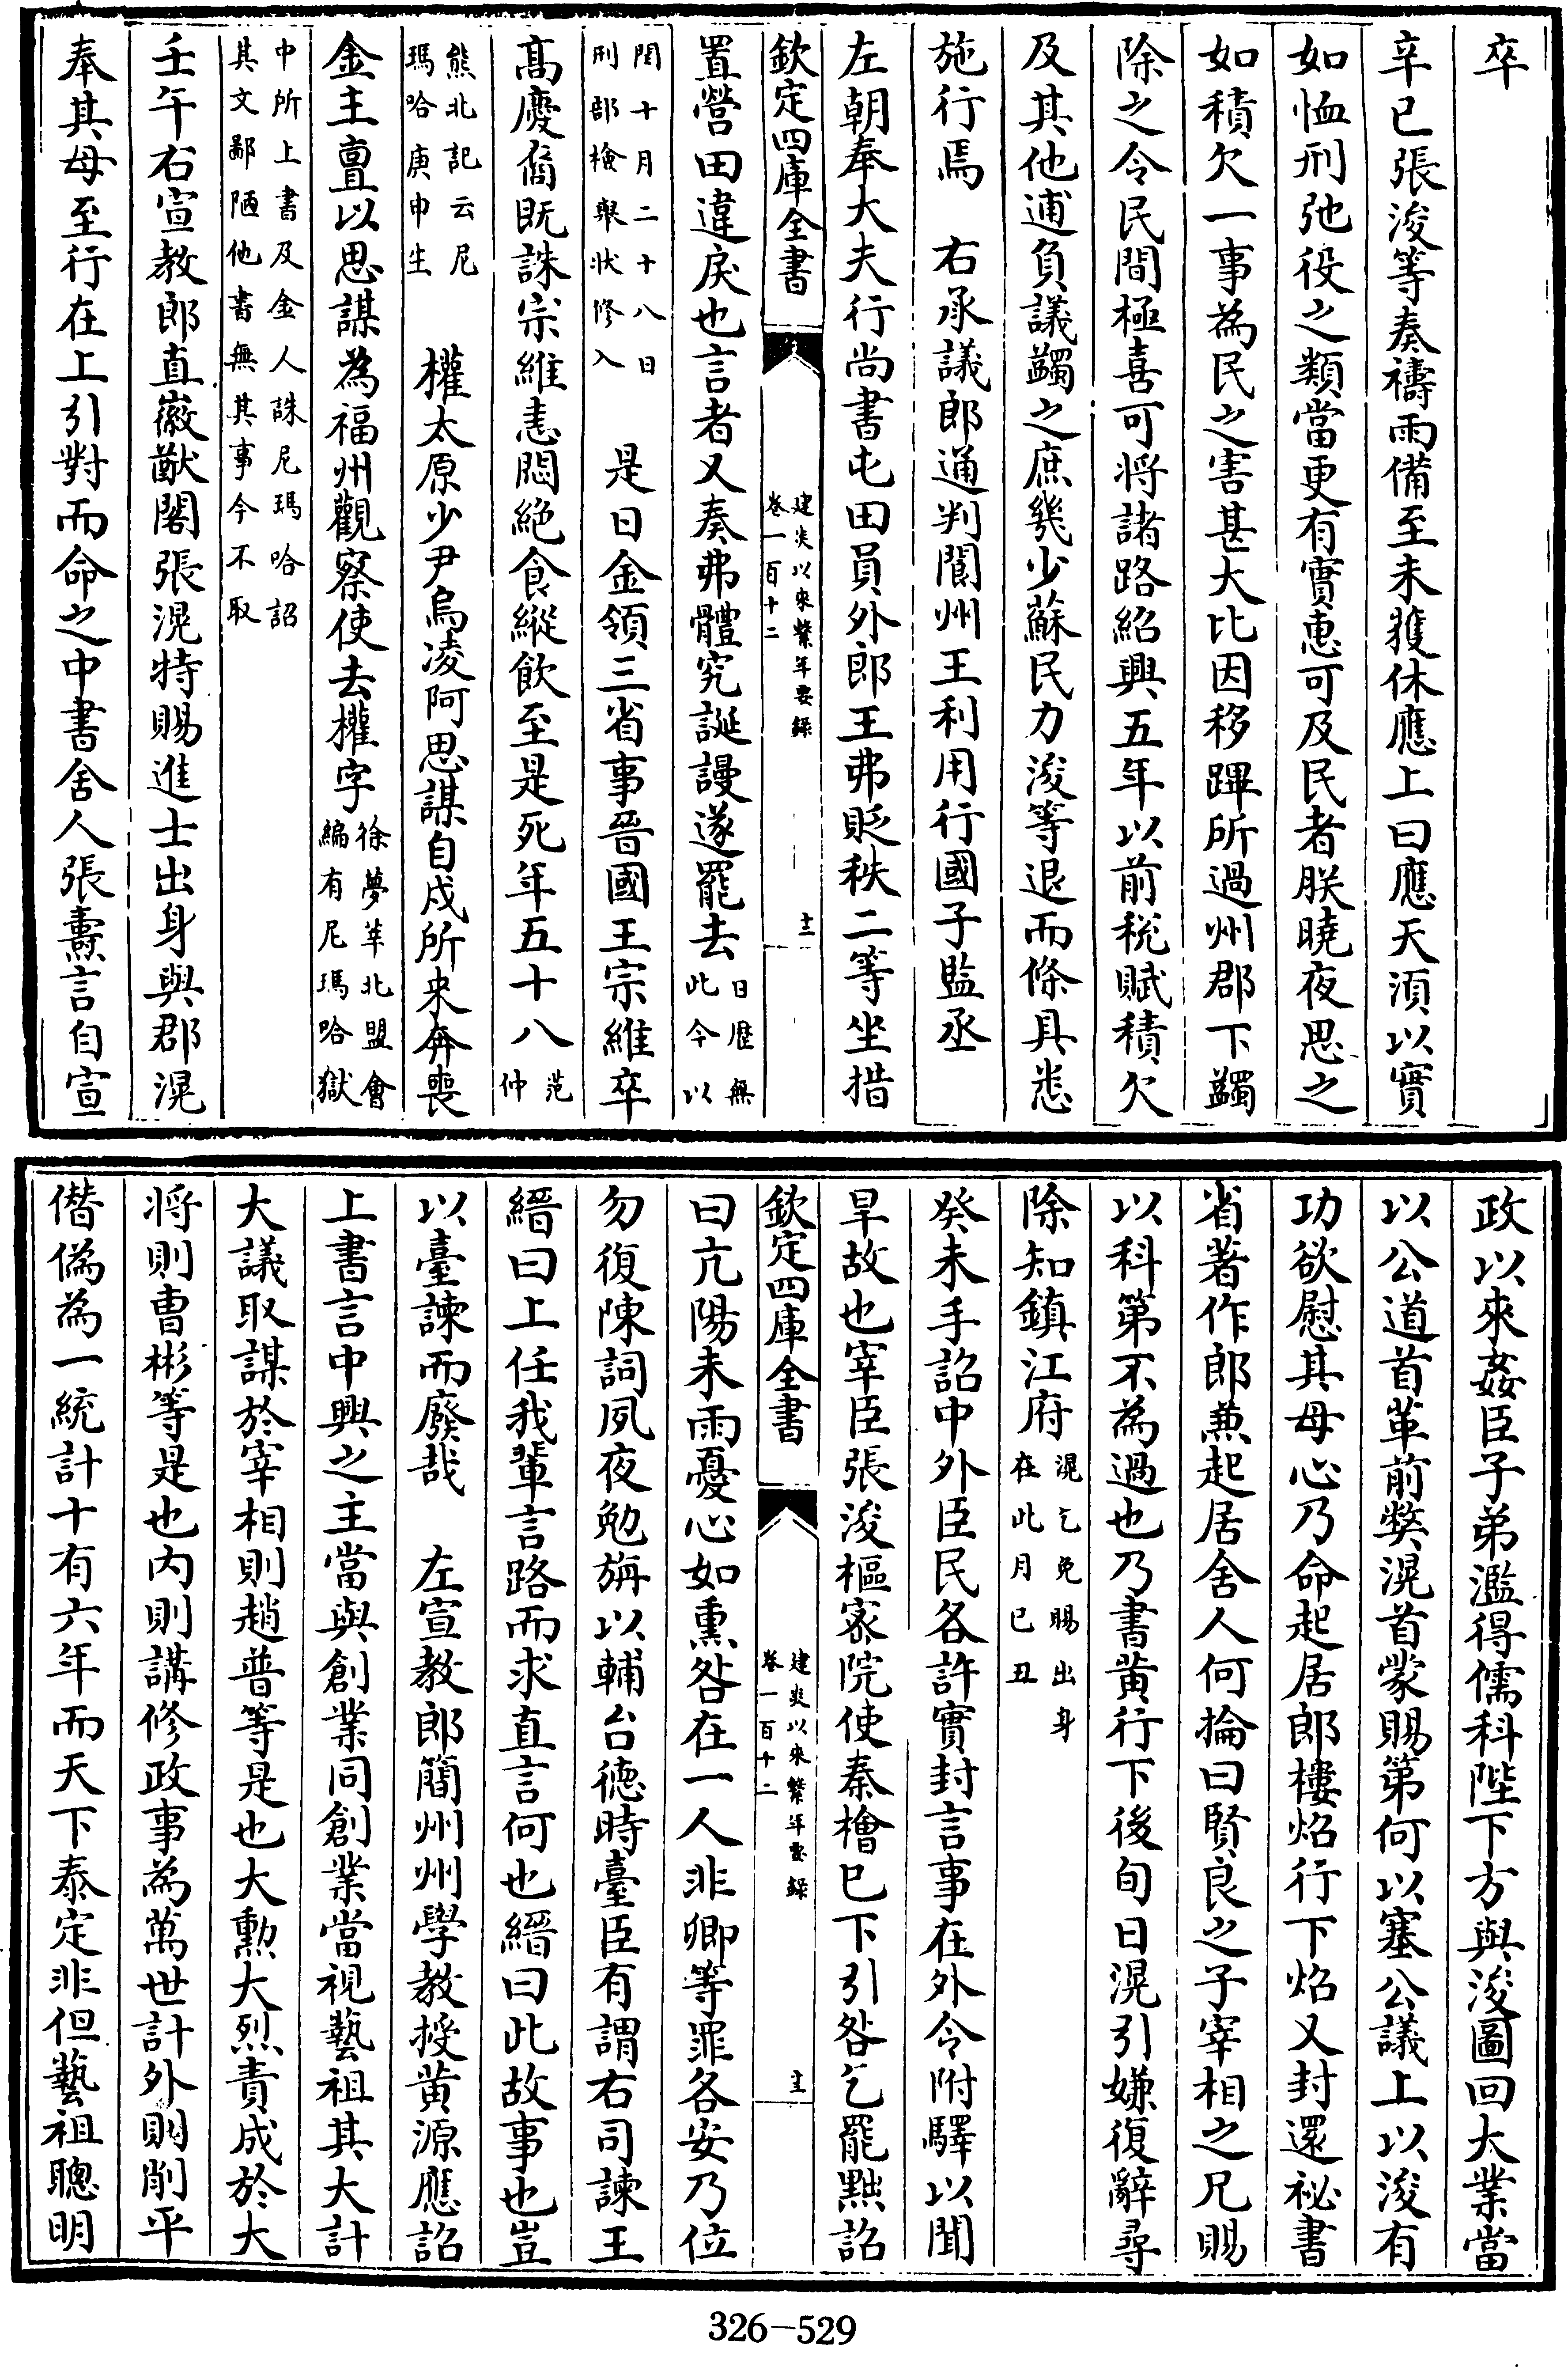 卒
辛巳張浚等奏禱雨備至未獲休應上曰應天須以實
如恤刑弛役之類當更有實惠可及民者朕曉夜思之
如積欠一事為民之害甚大比因移蹕所過州郡下蠲
除之令民間極喜可將諸路紹興五年以前稅賦積欠
及其他逋負議蠲之庶幾少蘇民力浚等退而條具悉
施行焉　右承議郎通判閬州王利用行國子監丞
左朝奉大夫行尚書屯田員外郎王弗貶秩二等坐措
欽定四庫全書
建炎以來繫年要錄
卷一百十二
十二
置營田違戾也言者又奏弗體究誕謾遂罷去日歷無
此今以
閏十月二十八日
刑部檢舉狀修入　是日金領三省事晉國王宗維卒
高慶裔既誅宗維恚悶絶食縱飲至是死年五十八范
仲
熊北記云尼
瑪哈庚申生　權太原少尹烏凌阿思謀自戍所來奔喪
金主亶以思謀為福州觀察使去權字徐夢莘北盟會
編有尼瑪哈獄
中所上書及金人誅尼瑪哈詔
其文鄙陋他書無其事今不取
壬午右宣教郎直徽猷閣張滉特賜進士出身與郡滉
奉其母至行在上引對而命之中書舍人張燾言自宣
政以來姦臣子弟濫得儒科陛下方與浚圖回大業當
以公道首革前弊滉首蒙賜第何以塞公議上以浚有
功欲慰其母心乃命起居郎樓炤行下炤又封還祕書
省著作郎兼起居舍人何掄曰賢良之子宰相之兄賜
以科第不為過也乃書黄行下後旬日滉引嫌復辭尋
除知鎮江府滉乞免賜出身
在此月己丑
癸未手詔中外臣民各許實封言事在外令附驛以聞
旱故也宰臣張浚樞密院使秦檜已下引咎乞罷黜詔
欽定四庫全書
建炎以來繫年要錄
卷一百十二
十三
曰亢陽未雨憂心如熏咎在一人非卿等罪各安乃位
勿復陳詞夙夜勉旃以輔台德時臺臣有謂右司諫王
縉曰上任我輩言路而求直言何也縉曰此故事也豈
以臺諫而廢哉　左宣教郎簡州州學教授黄源應詔
上書言中興之主當與創業同創業當視藝祖其大計
大議取謀於宰相則趙普等是也大勲大烈責成於大
將則曹彬等是也内則講修政事為萬世計外則削平
僭偽為一統計十有六年而天下泰定非但藝祖聰明
326-529